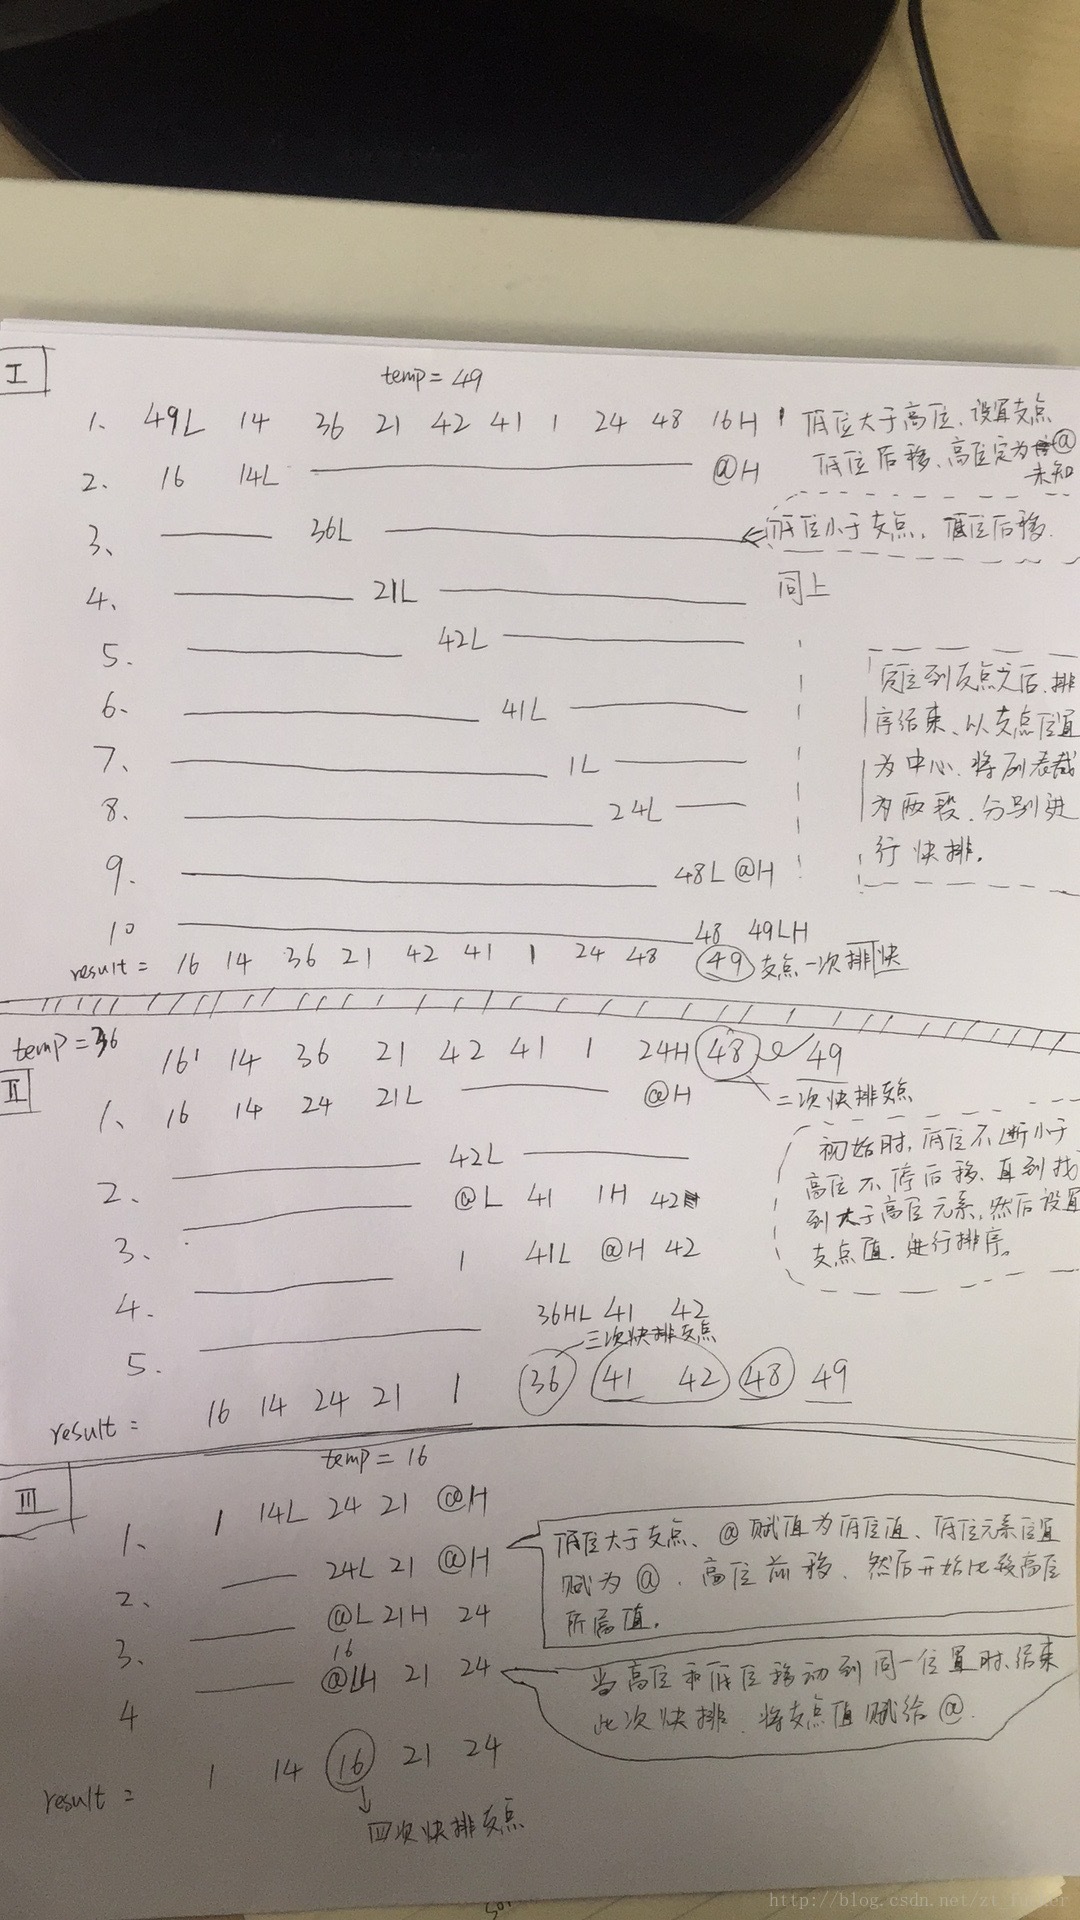 I
temp = 49
1. 49L 14 36 21 42 41 1 24 48 16H 低位大于高位、设置支点
低位后移、高位定为@
未知
2. 16 14L @H
3. 36L 低位小于支点，低位后移.
4. 21L 同上
5. 42L
6. 41L
7. 1L
8. 24L
9. 48L @H
10 48 49LH
低位到支点之后，排
序结束、以支点位置
为中心、将列表截
为两段、分别进
行快排.
result = 16 14 36 21 42 41 1 24 48 49 支点一次排快
temp = 36 16 14 36 21 42 41 1 24H 48 49
二次快排支点
II
1. 16 14 24 21L @H
2. 42L
3. @L 41 1H 42
4. 1 41L @H 42
5. 36HL 41 42
初始时，低位不断小于
高位不停后移、直到找
到大于高位元素，然后设置
支点值，进行排序。
三次快排支点
result = 16 14 24 21 1 36 41 42 48 49
III
temp = 16
1. 1 14L 24 21 @H
2. 24L 21 @H
3. @L 21H 24
16
4 @LH 21 24
低位大于支点、@赋值为低位值、低位元素位置
赋为@、高位前移、然后开始比较高位
所属值.
当高位和低位移动到同一位置时、结束
此次快排、将支点值赋给@.
result = 1 14 16 21 24
四次快排支点